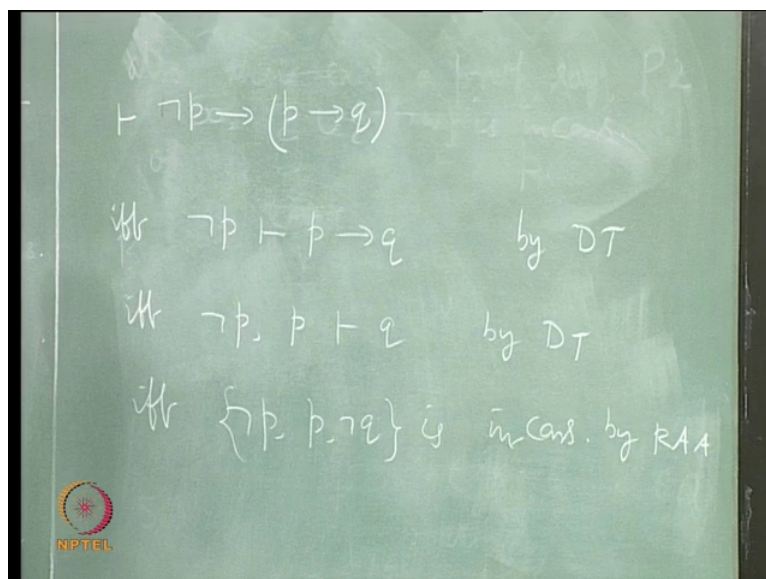 ⊢ ¬p → (p → q)
iff ¬p ⊢ p → q by DT
iff ¬p, p ⊢ q by DT
iff {¬p, p, ¬q} is incons. by RAA
NPTEL